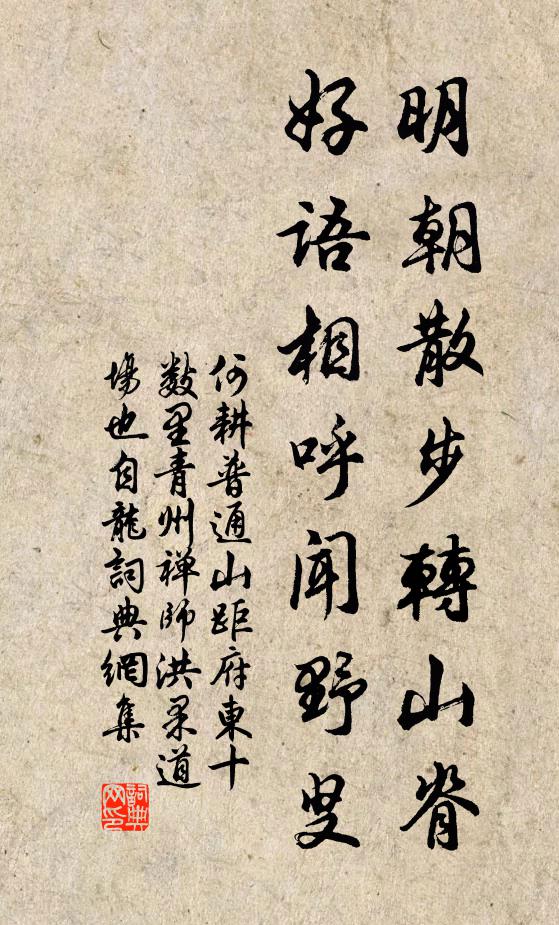 明朝散步轉山脊
好語相呼聞野叟
何耕普通山距府東十
數里青州禅師洪杲道
場也自龍詞典網集
詞典網印